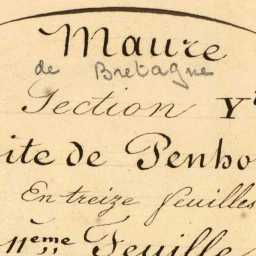 Maure
de Bretagne
Section Y
ite de Penho
En treize feuilles
11ème Feuille